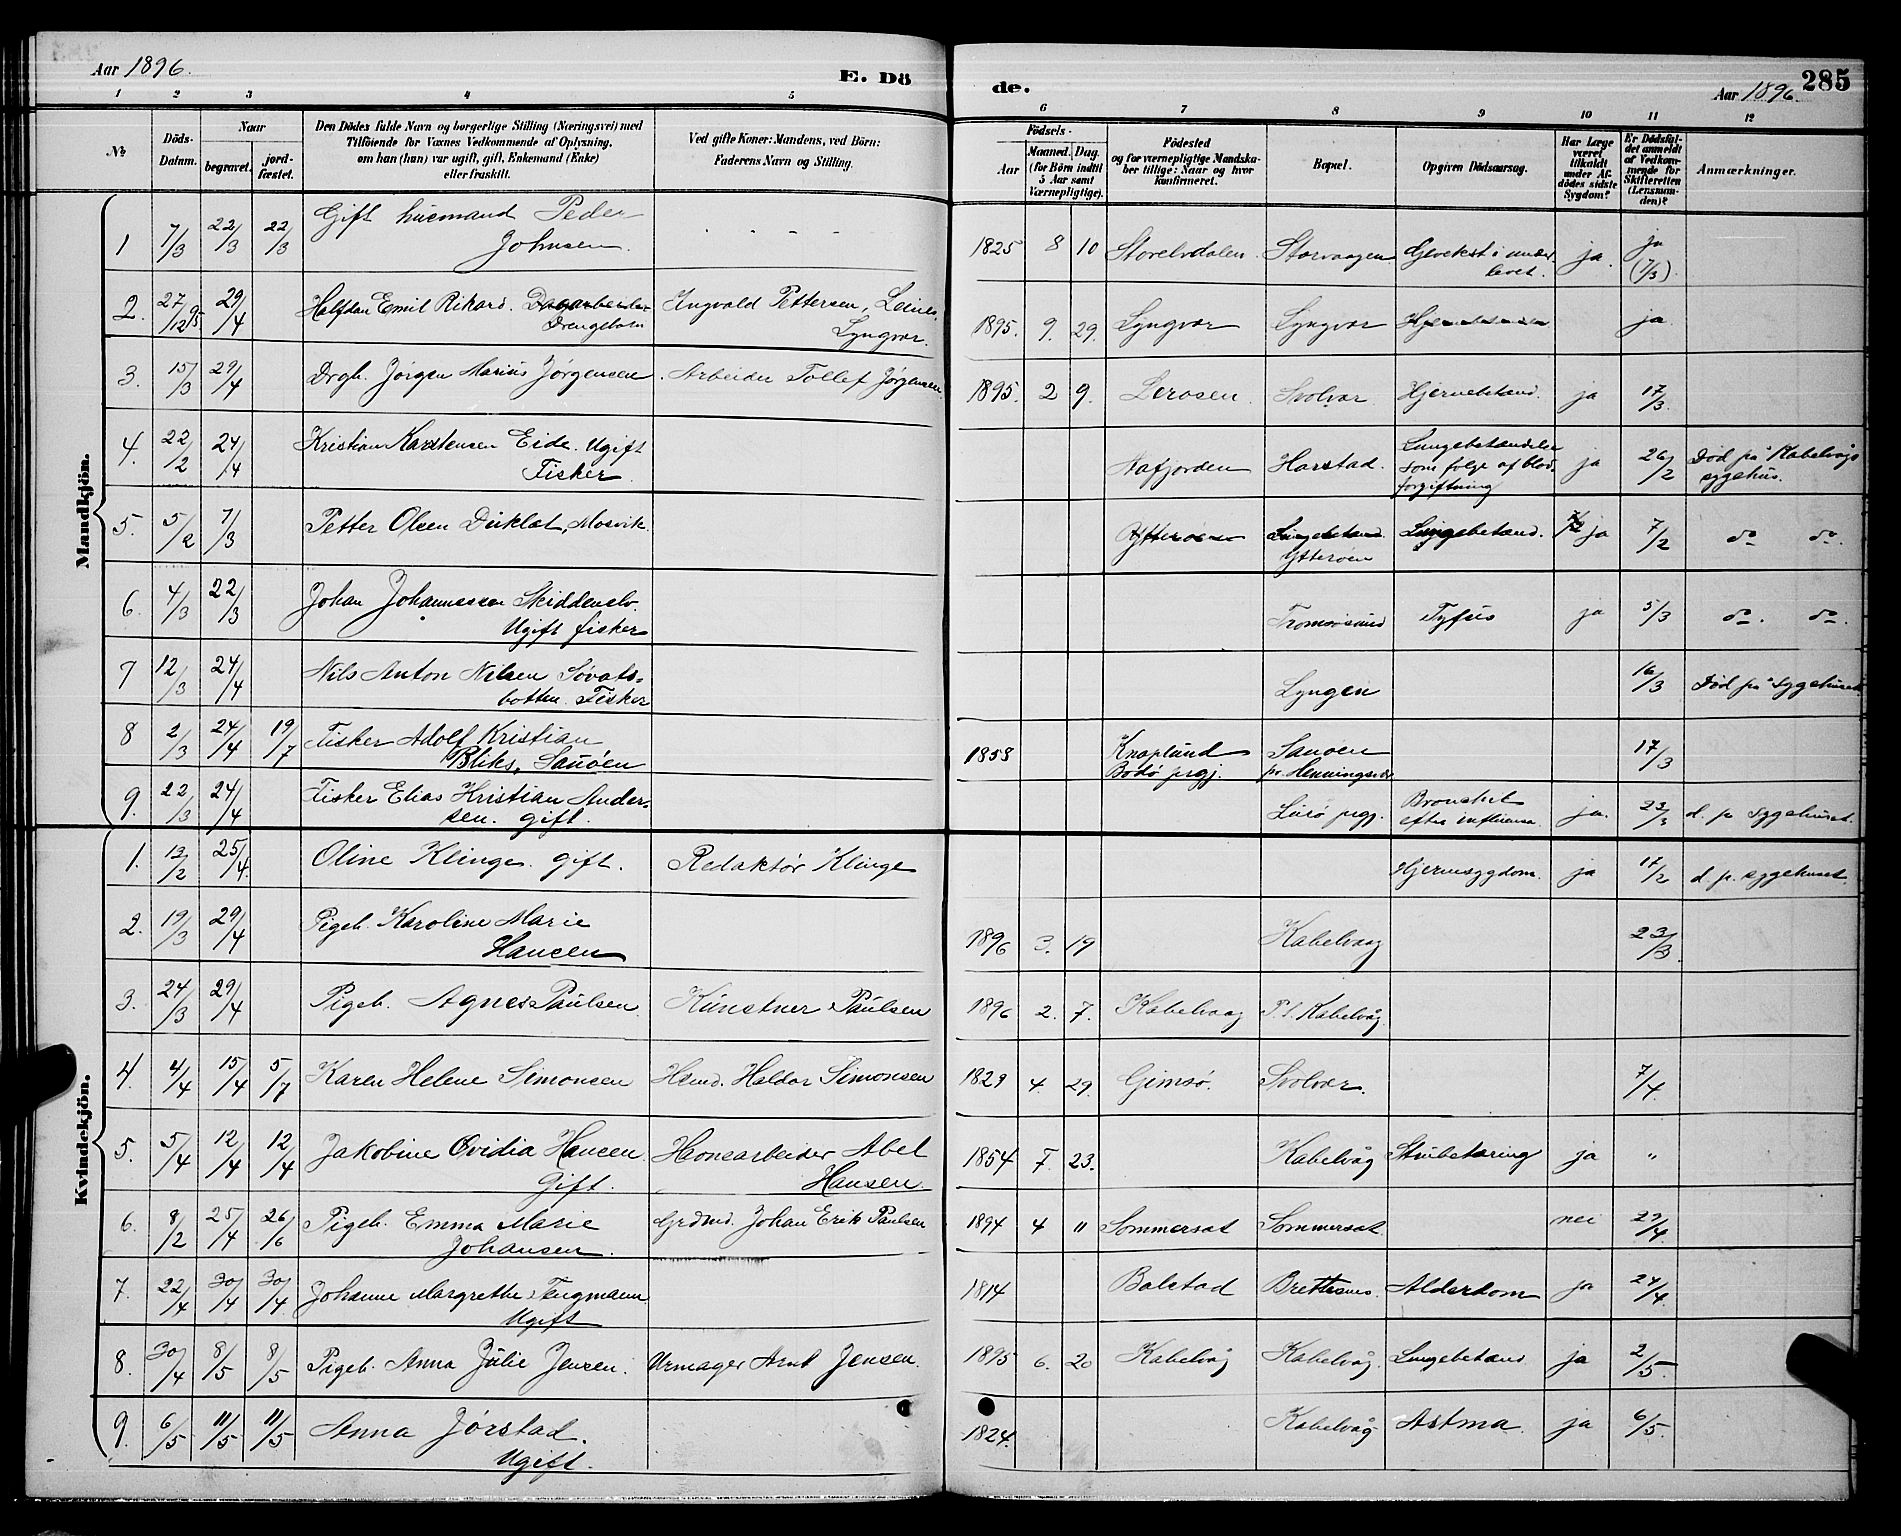 Aar 1896.
E. Dö
de.
Aar 1896.
285
1 2 3 4 5 6 7 8 9 10 11 12
No
Döds-Datum.
Naar
begravet.
jordfæstet.
Den Dödes fulde Navn og borgerlige Stilling (Næringsvei) med
Tilföiende for Voxnes Vedkommende af Oplysning,
om han (hun) var ugift, gift, Enkemand (Enke)
eller fraskilt.
Ved gifte Koner: Mandens, ved Börn:
Faderens Navn og Stilling.
Födsels-
Aar
Maaned. Dag.
(for Börn indtil
5 Aar samt
Værnepligtige).
Födested
og for værnepligtige Mandskaber tillige: Naar og hvor
konfirmeret.
Bopæl.
Opgiven Dödsaarsag.
Har Læge
været
tilkaldt
under Afdödes sidste
Sygdom?
Er Dödsfaldet anmeldt
af Vedkommende for
Skifteretten
(Lensmanden)?
Anmærkninger.
Mandkjön.
1 7/3 22/3 22/3 Gift husmand Peder Johnsen. 1825 8 10 Storelvdalen Storvaagen ja. ja (7/3)
2. 27/12 95 29/4 Halfdan Emil Rikard. Dagarbeider Drengebarn Ingvald Pettersen, Lyngvær. 1895. 9. 29. Lyngvær Lyngvær ja
3. 15/3 29/4 Drgb. Jørgen Marius Jørgensen Arbeider Tollef Jørgensen 1895. 2 9. Lerosen Svolvær Hjernebetænd. ja 17/3
4. 22/2 24/4 Kristian Karstensen Eide. Ugift Fisker. Harstad. Lungebetændelse som følge af blodforgiftning ja 26/2 Død på Kabelvågs sygehus.
5. 5/2 7/3 Petter Olsen Mosvik. Ytterøen Ytterøen Lungebetænd. ja 7/2 do do
6. 4/3 22/3 Johan Johannessen Skiddenelv. Ugift fisker Tromsøsund Tyfus ja 5/3 do. do.
7 12/3 24/4 Nils Anton Nilsen Søvatsbotten. Fisker Lyngen 16/3 Død på sygehuset
8 2/3 24/4 19/7 Fisker Adolf Kristian Bliks, Sanøen 1858 Knaplund Bodø prgj. Sanøen pr. Henningsvær 17/3
9. 22/3 24/4 Fisker Elias Kristian Andersen. gift. prgj. Bronchit efter influensa ja. 23/3 d. på Sygehuset.
Kvindekjön.
1. 13/2 25/4 Oline Klinge. gift. Redaktør Klinge Hjernesygdom. ja 17/2 d. p. sygehuset.
2. 19/3 29/4 Pigeb. Karoline Marie Hansen 1896 3. 19 Kabelvaag 23/3
3. 24/3 29/4 Pigeb. Agnes Paulsen Kunstner Paulsen 1896 2. 7. Kabelvaag P.t. Kabelvåg
4. 4/4 15/4 5/7 Karen Helene Simonsen Hsmd. Haldor Simonsen 1829 4. 29. Gimsø. Svolvær. 7/4
5. 5/4 12/4 12/4 Jakobine Ovidia Hansen Gift. Havnearbeider Abel Hansen. 1854 7. 23. Kabelvåg Strubetæring ja "
6. 8/2 25/4 26/6 Pigeb. Emma Marie Johansen. Grdmd. Johan Erik Paulsen 1894 4 11 Sommersæt Sommersæt nei 29/4
7. 22/4 30/4 30/4 Johanne Margrethe Tengmann Ugift 1814 Balstad Brettesnes. Alderdom ja 24/4
8. 30/4 8/5 8/5 Pigeb. Anna Julie Jensen. Urmager Arnt Jensen. 1895 6. 20 Kabelvåg Kabelvåg. Lungebetænd ja 2/5
9. 6/5 11/5 11/5 Anna Jørstad. Ugift. 1824. Kabelvåg Astma. ja 6/5